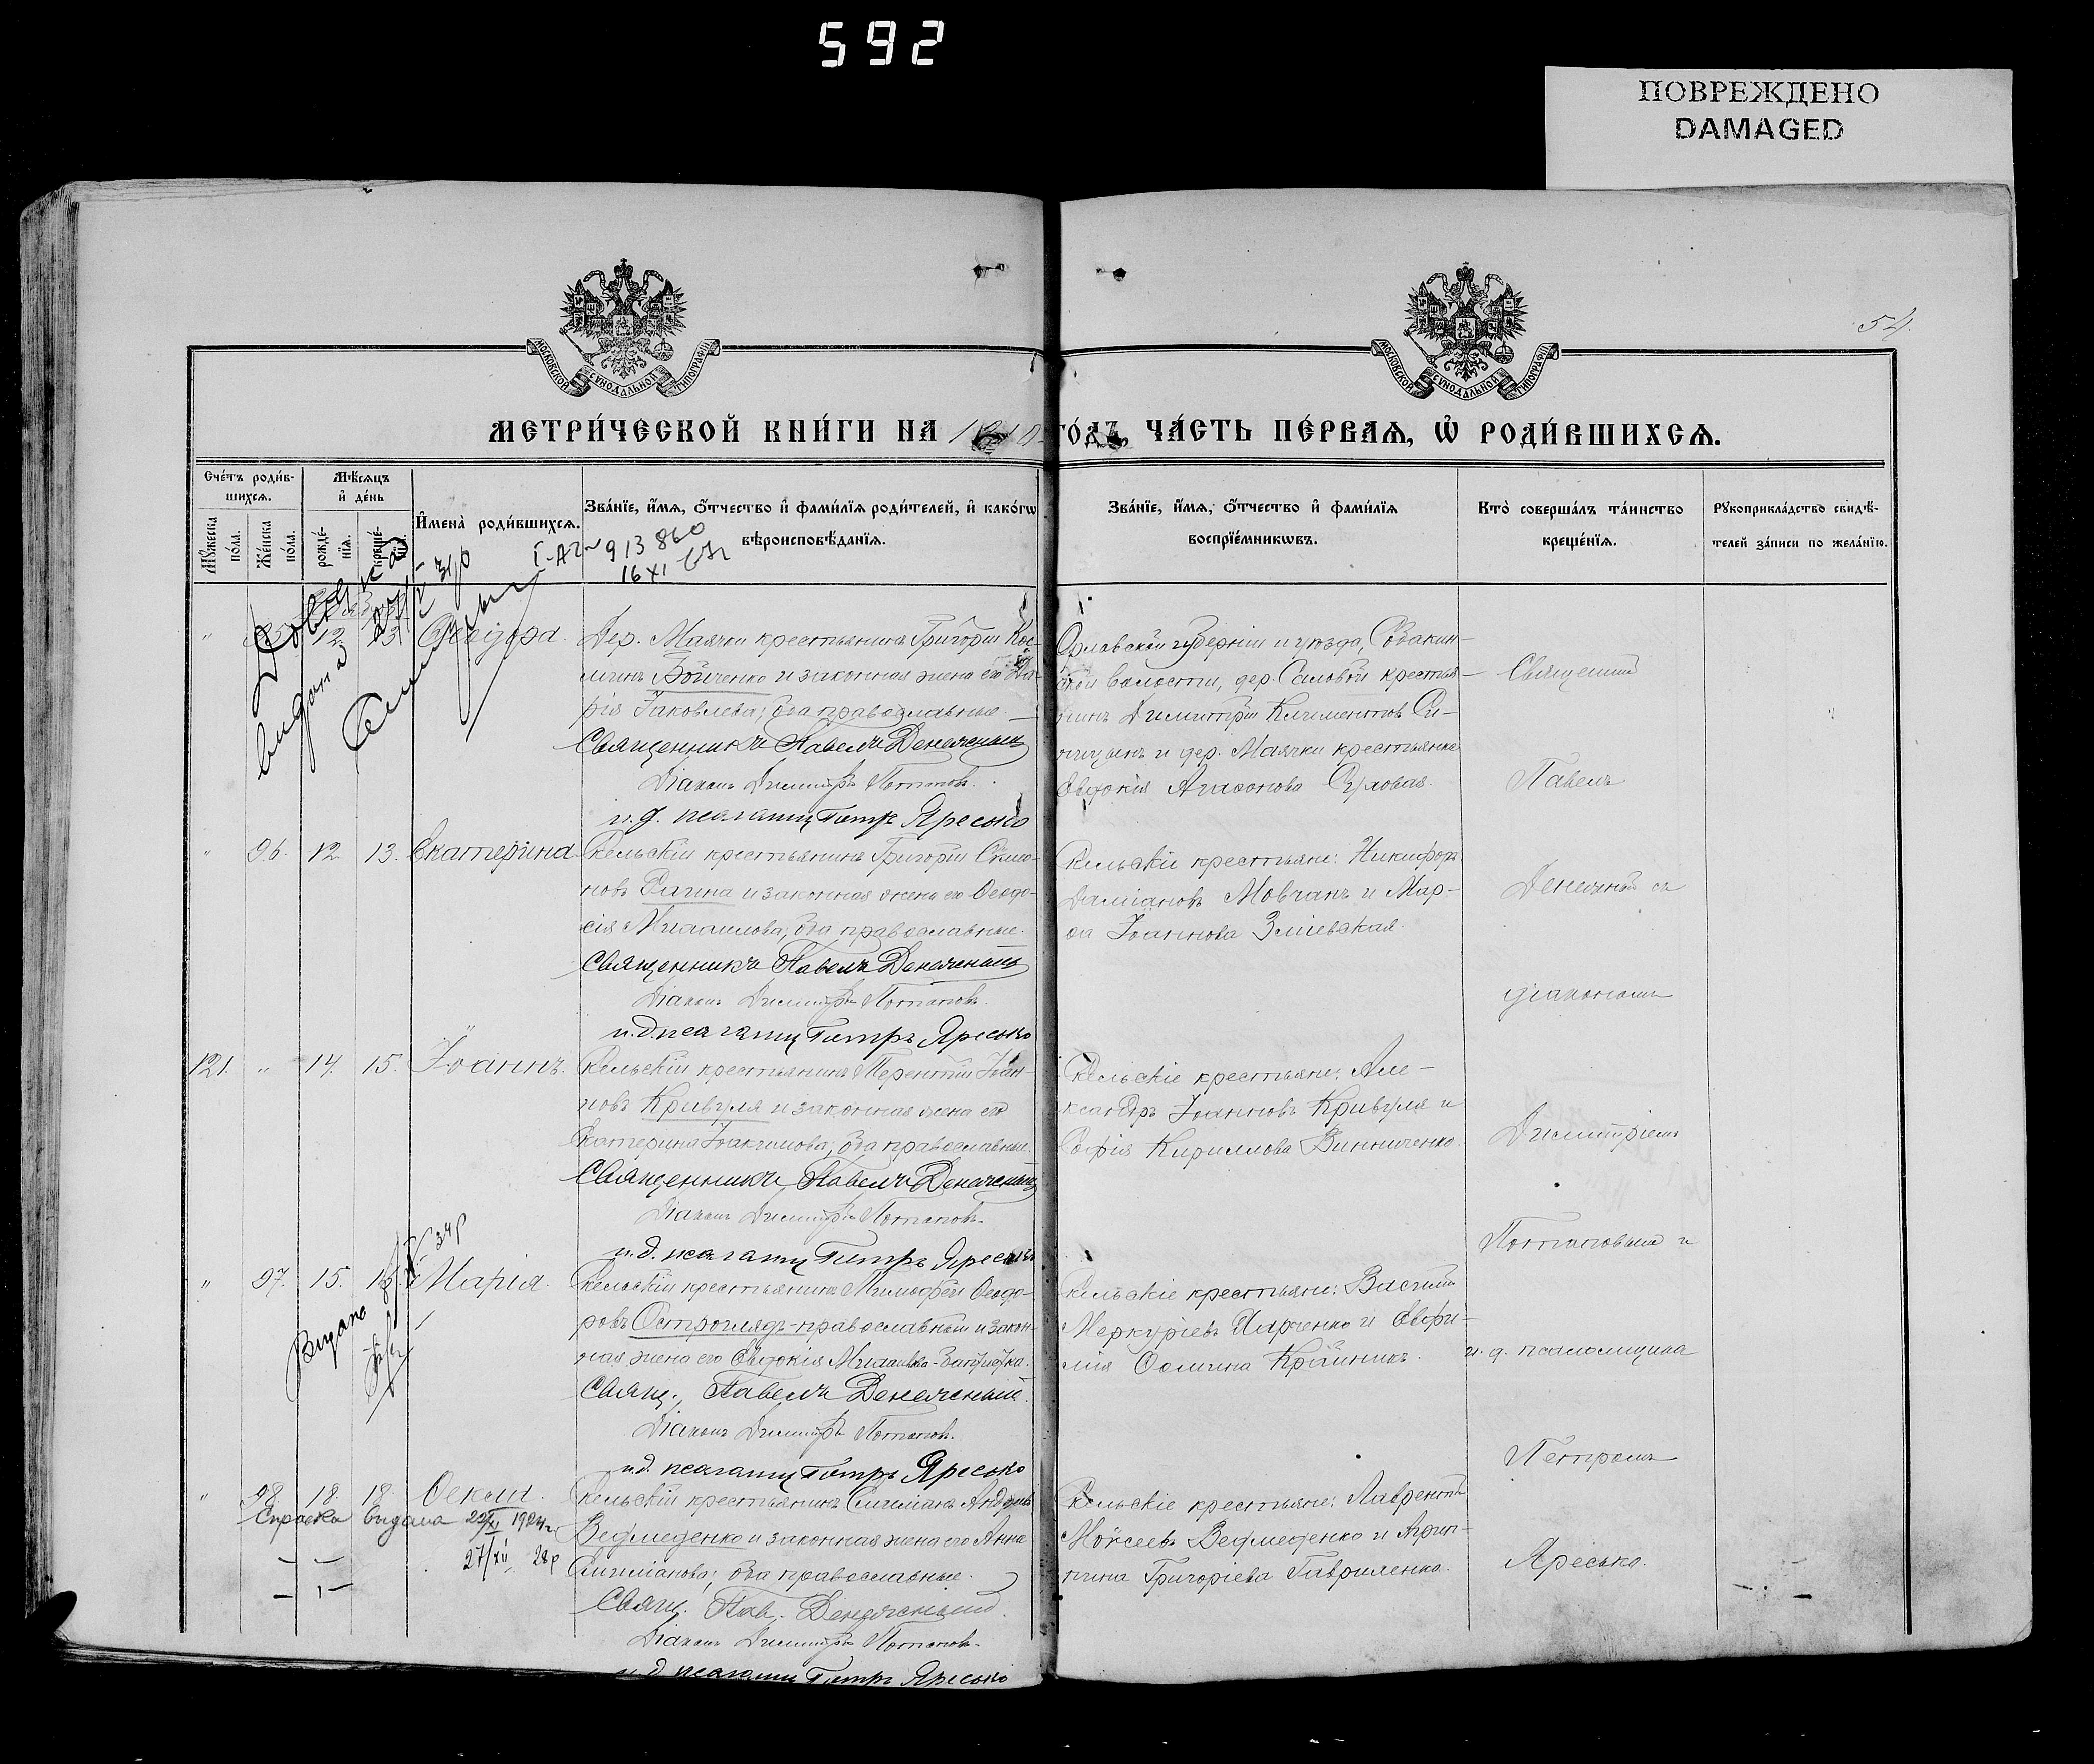 592
ПОВРЕЖДЕНО
DAMAGED
54.
МОСКОВСКОЙ СУНОДАЛЬНОЙ ТИПОГРАФІИ
МОСКОВСКОЙ СУНОДАЛЬНОЙ ТИПОГРАФІИ
МЕТРИ́ЧЕСКОЙ КНИ́ГИ НА
ГО́ДЪ, ЧА́СТЬ ПЕ́РВАЯ, Ѡ РОДИ́ВШИХСЯ.
Сче́тъ роди́в-
шихся.
Мѣ́сяцъ
и҆ де́нь
Мꙋ́жеска
по́ла.
Же́нска
по́ла.
рожде́-
нїя.
креще́-
нїя.
И҆мена̀ роди́вшихся.
Зва́нїе, и҆́мя, ѻ҆́тчество и҆ фами́лїя роди́телей, и҆ како́гѡ
вѣроисповѣ́данїя.
Зва́нїе, и҆́мя, ѻ҆́тчество и҆ фами́лїя
воспрїе́мникѡвъ.
Кто̀ соверша́лъ та́инство
креще́нїя.
Рꙋкоприкла́дство свидѣ́-
телей за́писи по жела́нїю.
913860
16 XI
видана
" 12. 13. Ѳеодора. Дер. Маячки крестьянинъ Григорій Кос-
минъ Бойченко и законная жена его Да-
рія Іаковлева; оба православные.
Священникъ Павелъ Денежный
Діаконъ Димитрій Потаповъ.
и. д. псаломщ Петръ Яресько
Орловской губерніи и уѣзда, Собакин-
ской волости, дер. Саловой крестья-
нинъ Димитрій Климентовъ Си-
ницынъ и дер. Маячки крестьянка
Евдокія Агаѳонова Суловая.
" 96. 12. 13. Екатерина. Сельскій крестьянинъ Григорій Симо-
новъ Сагина и законная жена его Ѳеодо-
сія Михаилова; оба православные.
Священникъ Павелъ Денежный
Діаконъ Димитрій Потаповъ.
и. д. псаломщ Петръ Яресько
Сельскіе крестьяне: Никифоръ
Даміановъ Мовчанъ и Мар-
ѳа Іоаннова Зміевская.
121. " 14. 15. Іоаннъ. Сельскій крестьянинъ Терентій Іоан-
новъ Кривуля и законная жена его
Екатерина Іоакимова; оба православные.
Священникъ Павелъ Денежный
Діаконъ Димитрій Потаповъ.
и. д. псаломщ Петръ Яресько
Сельскіе крестьяне: Але-
ксандръ Іоанновъ Кривуля и
Софія Кириллова Винниченко.
Видано
" 97. 15. 15. Марія. Сельскій крестьянинъ Тимоѳей Ѳеодо-
ровъ Остроглядъ-православный и закон-
ная жена его Евдокія Михаилова
Свящ. Павелъ Денежный
Діаконъ Димитрій Потаповъ.
и. д. псаломщ Петръ Яресько
Сельскіе крестьяне: Василій
Меркуріевъ Марченко и Евфи-
мія Ѳомина Крайникъ.
" 98. 18. 18. Ѳекла. Сельскій крестьянинъ Сигизманъ Андреевъ
Справка видана 1924 г.
27/XII 28 р
Ведмеденко и законная жена его Анна
оба православные.
Свящ. Пав. Денежный
Діаконъ Димитрій Потаповъ.
и. д. псаломщ Петръ Яресько
Сельскіе крестьяне: Лаврентій
Моѵсеевъ Ведмеденко и Агрип-
пина Григоріева Гавриленко.
Священникъ
Павелъ
Денежный съ
діакономъ
Димитріемъ
Потаповымъ и
и. д. псаломщика
Петромъ
Яресько.